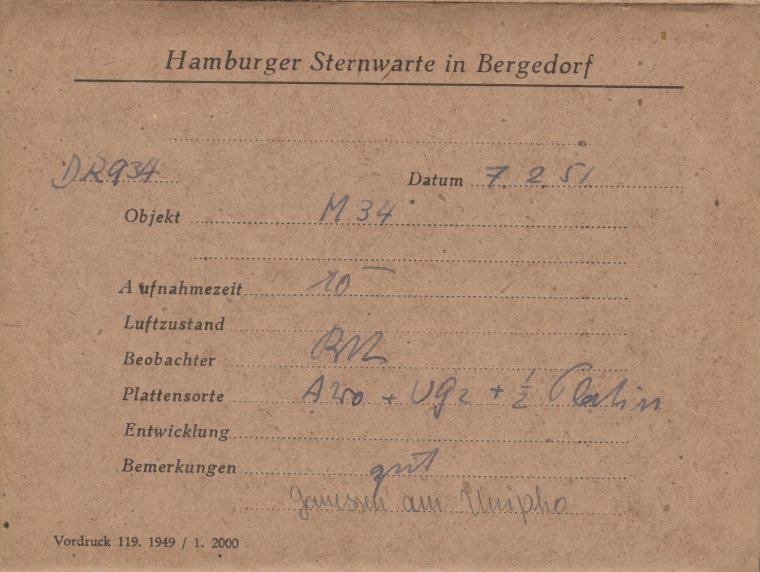 Hamburger Sternwarte in Bergedorf
DR934 Datum 7. 2. 51
Objekt M 34
Aufnahmezeit 10
Luftzustand
Beobachter
Plattensorte + UG2 + ½ Platin
Entwicklung
Bemerkungen gut
gemessen am Unipho
Vordruck 119. 1949 / 1. 2000